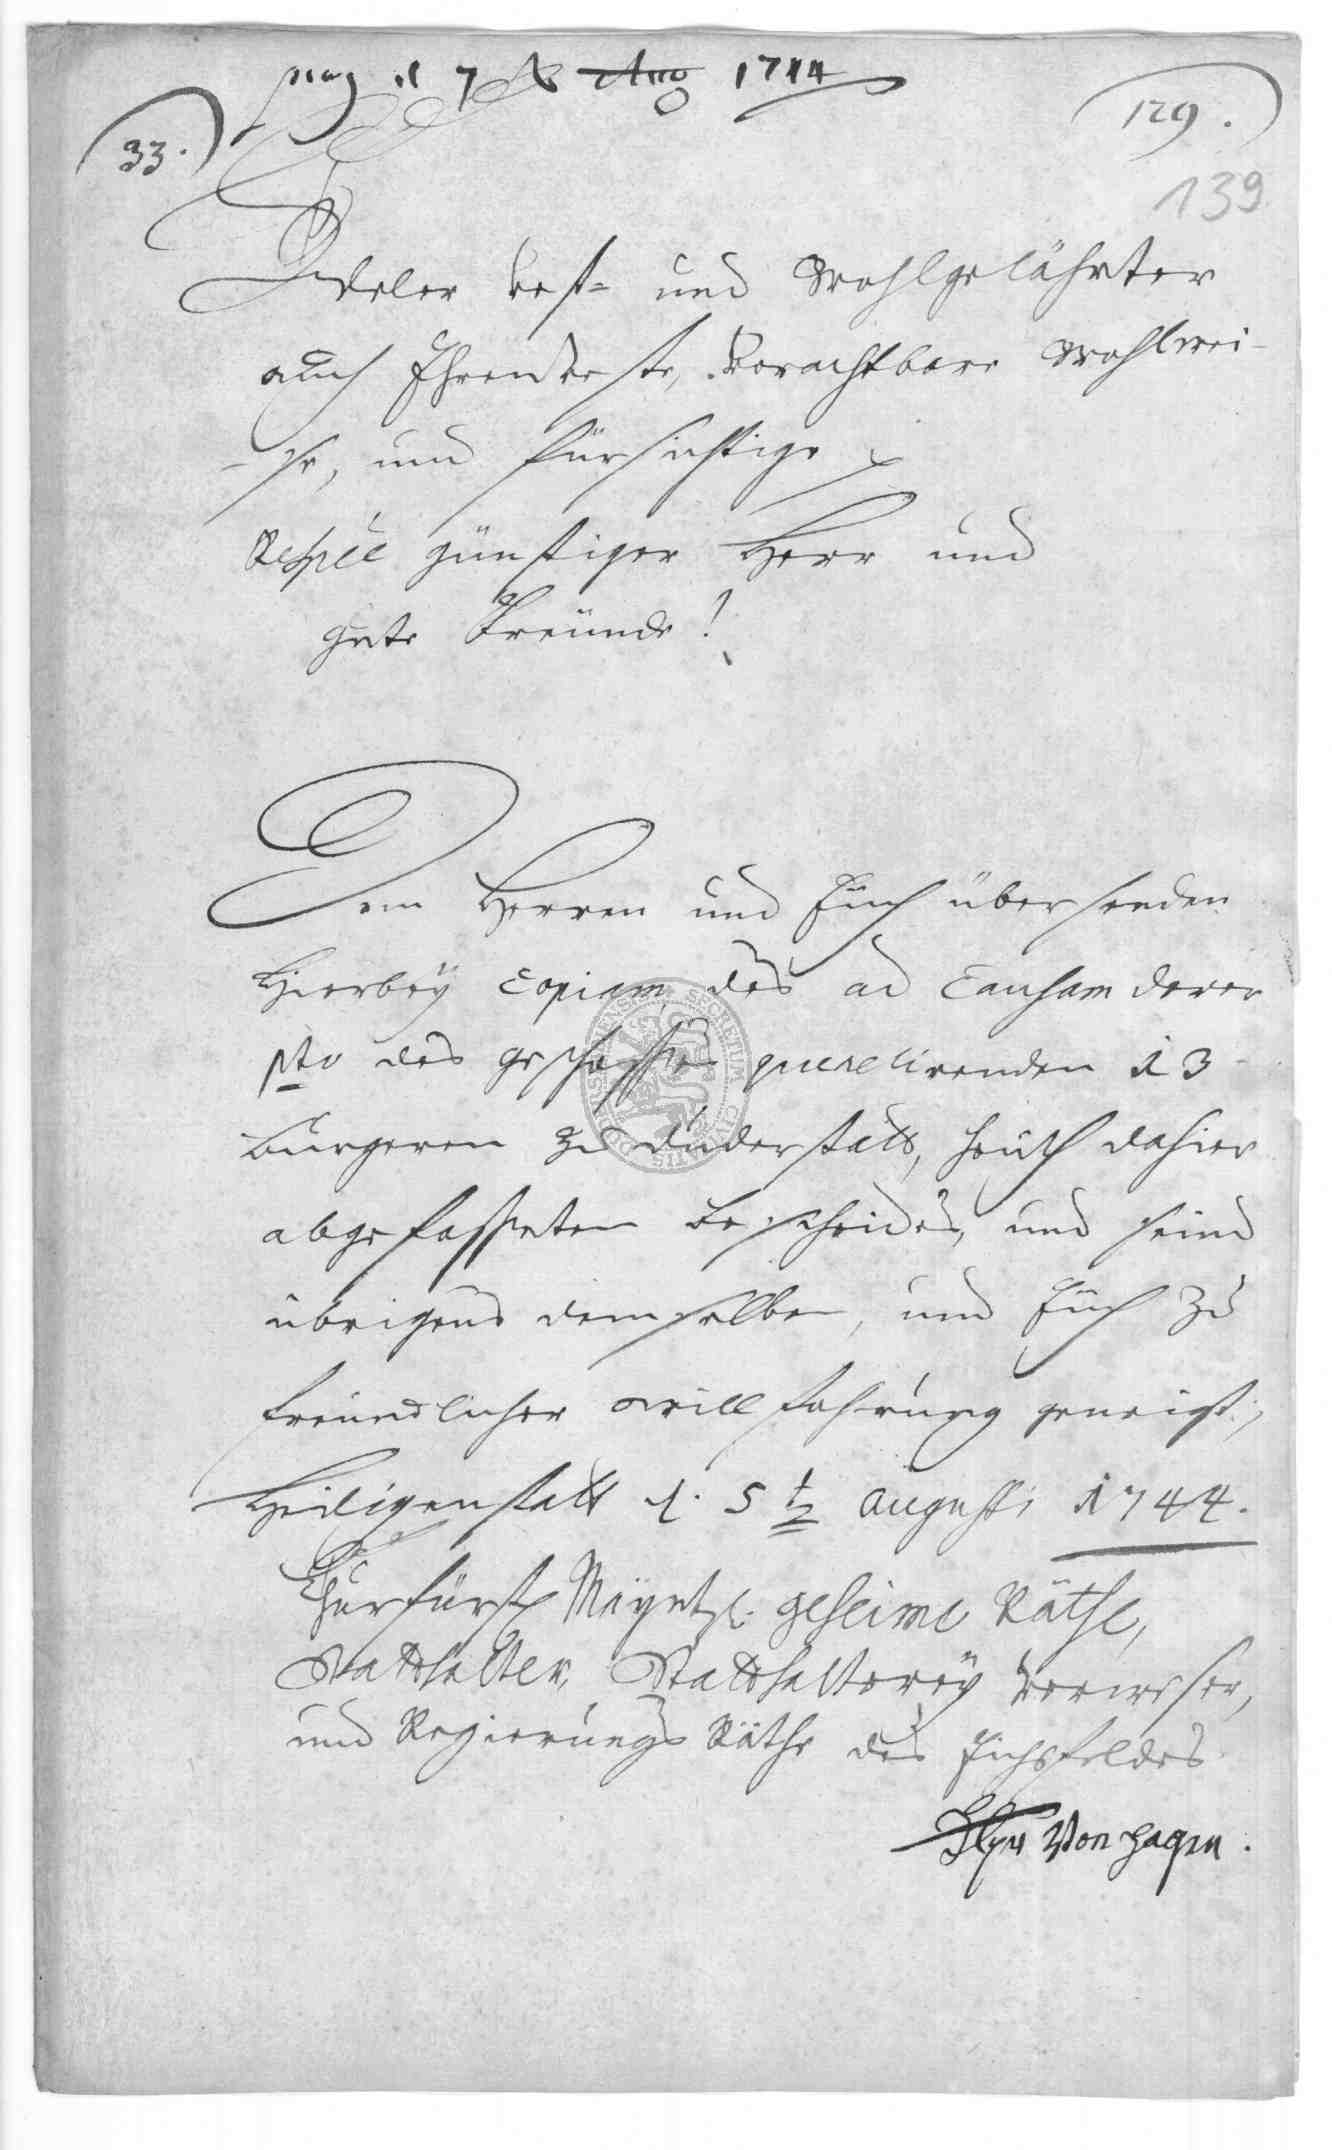 d 7 Aug 1744
33.
129.
139
Edeler Vest- und Wohlgelährter
auch Ehrenveste, Vorachtbare Wohlwei-
-se, und fürsichtige
Respée günstiger Herr und
gute Freünde!
Dem Herren und Eüch übersenden
Hierbey Copiam des ad Causam derer
pto des geschosses querelirenden 13
burgeren zu Duderstatt, heüth dahier
abgefasseten bescheides, und seind
übrigens demselben, und Eüch zu
freündlicher willfahrung geneigt,
Heiligenstatt d. 5t augusti 1744.
Churfürstl Mayntz. geheime Räthe,
Statthalter, Statthalterey Verweser,
und Regierungs Räthe des Eichsfeldes
Von Hagen.
SECRETUM CIVITATIS